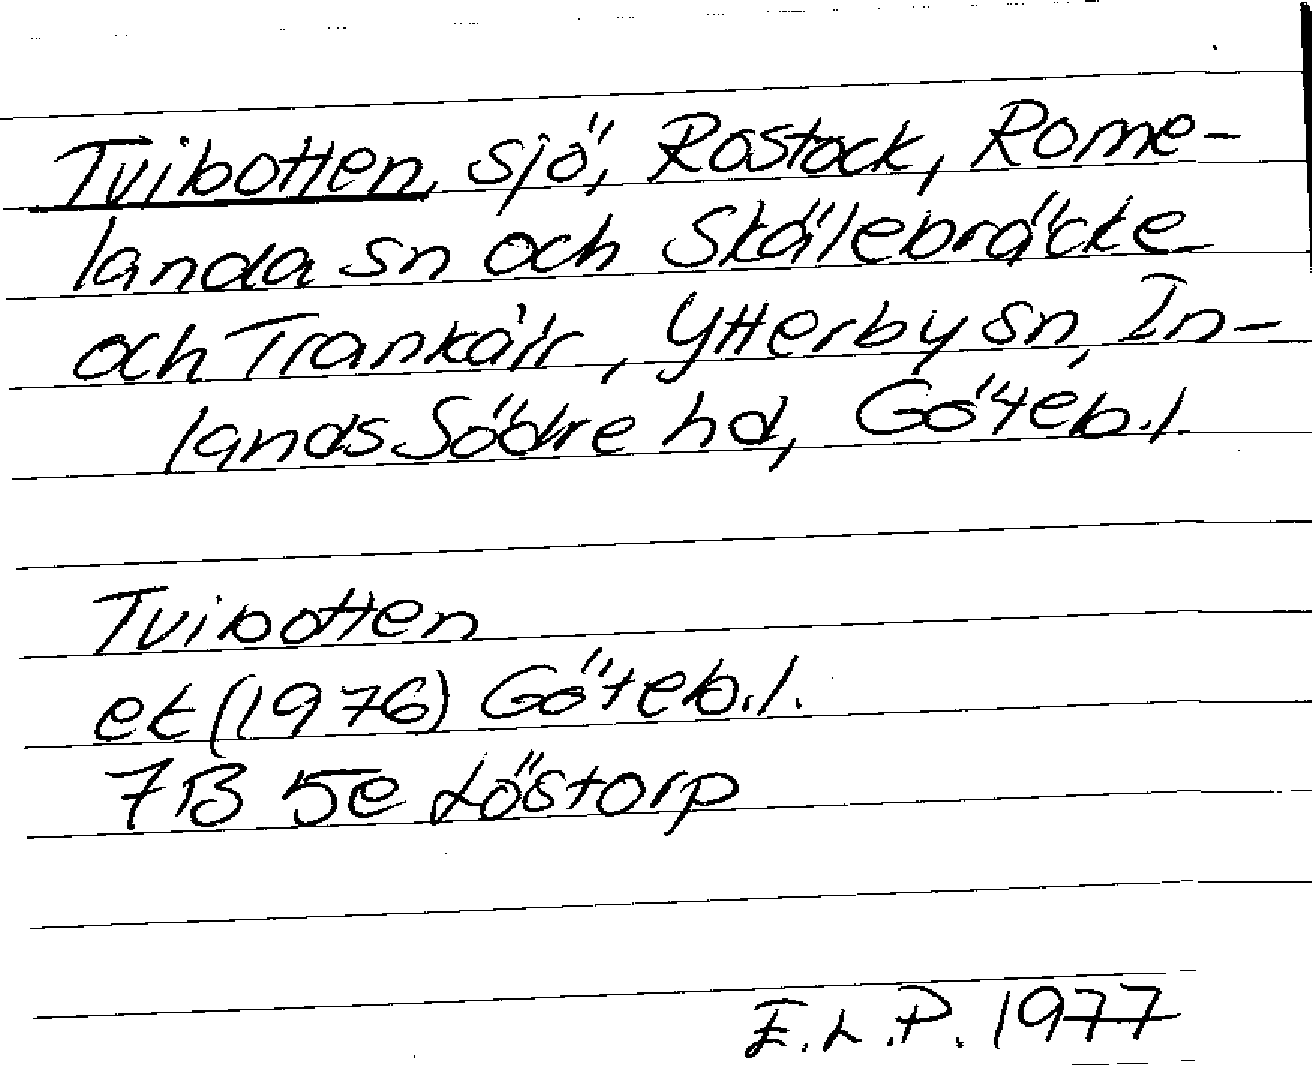 Tvibotten, sjö, Rostock, Rome-
landa sn och Skälebräcke
och Trankärr, Ytterby sn, In-
lands Södre hd, Göteb.l.
Tvibotten
ek (1976) Göteb.l.
7B 5e Löstorp
E.L.P. 1977